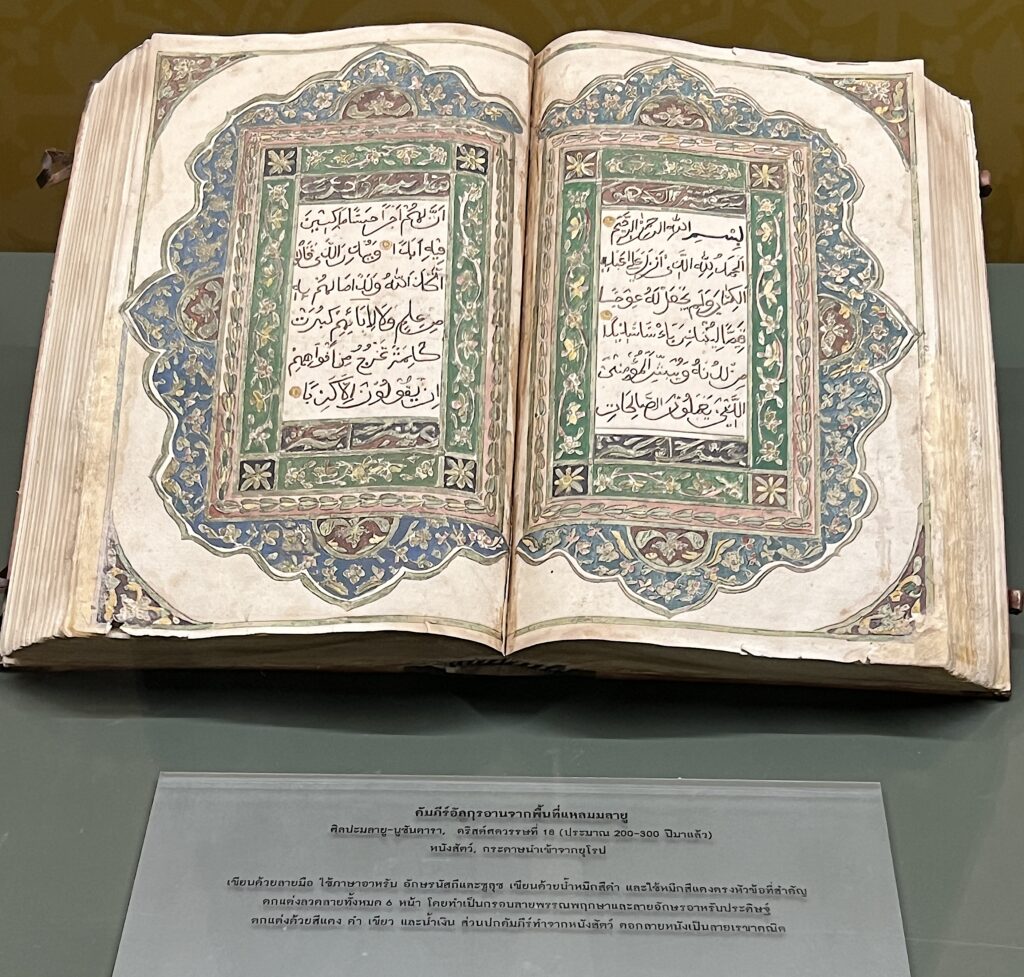 بِسْمِ اللّٰهِ الرَّحْمٰنِ الرَّحِيْمِ
اَلْحَمْدُ لِلّٰهِ الَّذِيْ اَنْزَلَ عَلٰى عَبْدِهِ
الْكِتَابَ وَلَمْ يَجْعَلْ لَهُ عِوَجًا
قَيِّمًا لِيُنْذِرَ بَأْسًا شَدِيْدًا
مِنْ لَدُنْهُ وَيُبَشِّرَ الْمُؤْمِنِيْنَ
الَّذِيْنَ يَعْمَلُوْنَ الصَّالِحَاتِ
اَنَّ لَهُمْ اَجْرًا حَسَنًا مَاكِثِيْنَ
فِيْهِ اَبَدًا وَيُنْذِرَ الَّذِيْنَ قَالُوا
اتَّخَذَ اللّٰهُ وَلَدًا مَا لَهُمْ بِهِ
مِنْ عِلْمٍ وَلَا لِاٰبَائِهِمْ كَبُرَتْ
كَلِمَةً تَخْرُجُ مِنْ اَفْوَاهِهِمْ
اِنْ يَقُوْلُوْنَ اِلَّا كَذِبًا
คัมภีร์อัลกุรอานจากพื้นที่แหลมมลายู
ศิลปะมลายู-นูซันตารา, คริสต์ศตวรรษที่ 18 (ประมาณ 200-300 ปีมาแล้ว)
หนังสัตว์, กระดาษนำเข้าจากยุโรป
เขียนด้วยลายมือ ใช้ภาษาอาหรับ อักษรนัสกีและซูลุซ เขียนด้วยน้ำหมึกสีดำ และใช้หมึกสีแดงตรงหัวข้อที่สำคัญ
ตกแต่งลวดลายทั้งหมด 6 หน้า โดยทำเป็นกรอบลายพรรณพฤกษาและลายอักษรอาหรับประดิษฐ์
ตกแต่งด้วยสีแดง ดำ เขียว และน้ำเงิน ส่วนปกคัมภีร์ทำจากหนังสัตว์ ตอกลายหนังเป็นลายเรขาคณิต